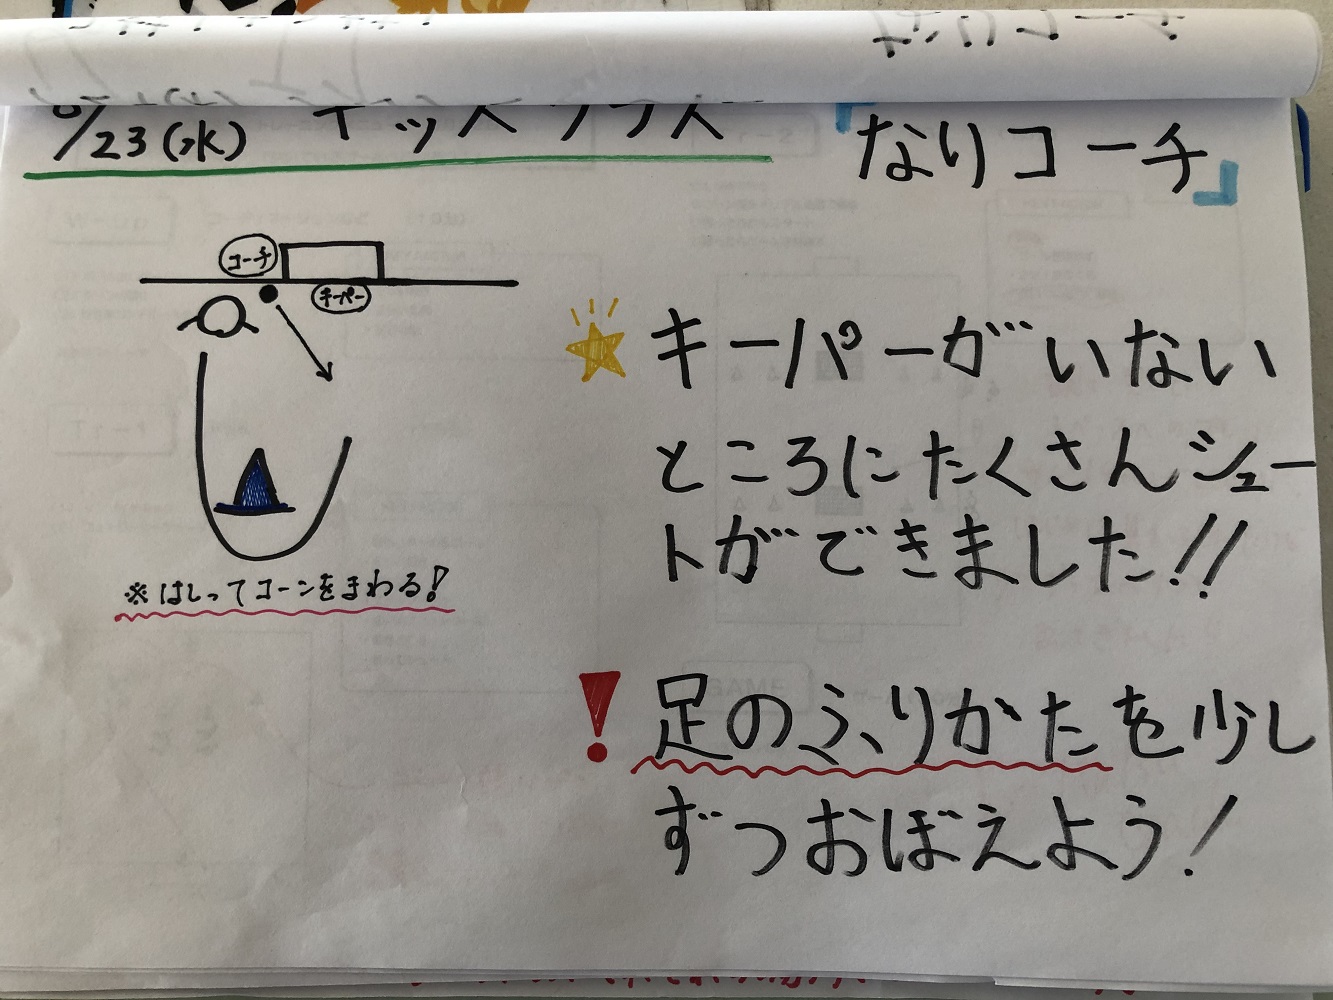 /23(水) キッズクラス
『なりコーチ』
コーチ
キーパー
※はしってコーンをまわる!
キーパーがいない
ところにたくさんシュー
トができました!!
足のふりかたを少し
ずつおぼえよう!